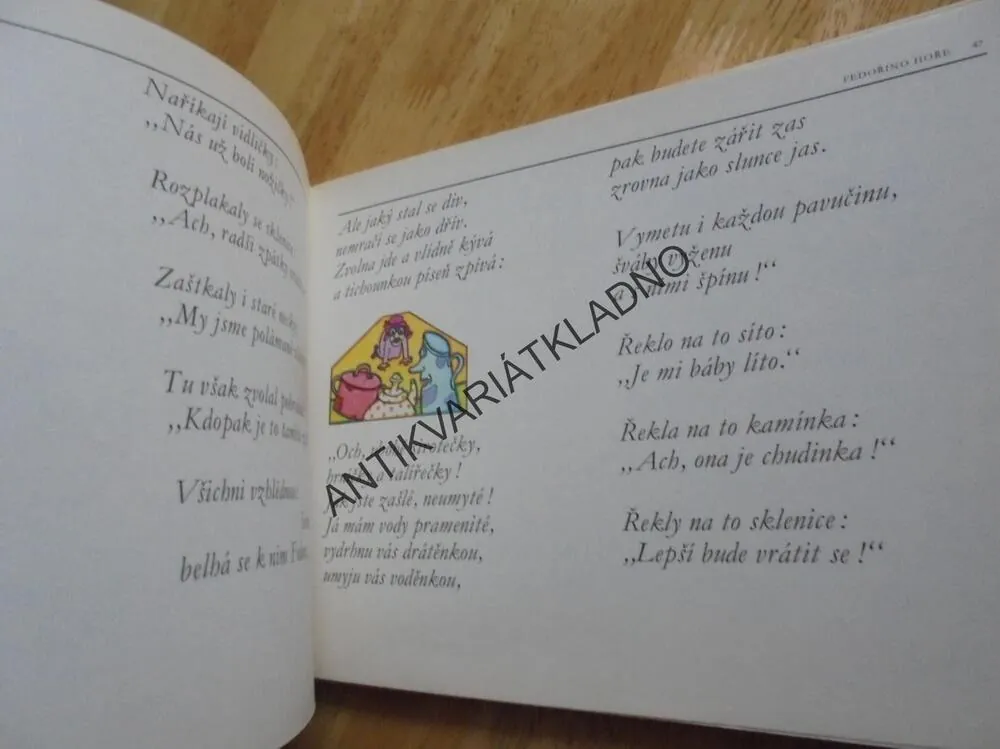 Naříkají vidličky:
„Nás už bolí nožičky!“
Rozplakaly se
„Ach, radši zpátky
Zaštkaly i staré
„My jsme polámané
Tu však zvolal
„Kdopak je to
Všichni vzhlédnou:
belhá se k nim
FEDOŘINO HOŘE 47
Ale jaký stal se div,
nemračí se jako dřív.
Zvolna jde a vlídně kývá
a tichounkou píseň zpívá:
„Och,
a talířečky!
zašlé, neumyté!
Já mám vody pramenité,
vydrhnu vás drátěnkou,
umyju vás voděnkou,
pak budete zářit zas
zrovna jako slunce jas.
Vymetu i každou pavučinu,
šváby vyženu
a s nimi špínu!“
Řeklo na to síto:
„Je mi báby líto.“
Řekla na to kamínka:
„Ach, ona je chudinka!“
Řekly na to sklenice:
„Lepší bude vrátit se!“
ANTIKVARIÁTKLADNO